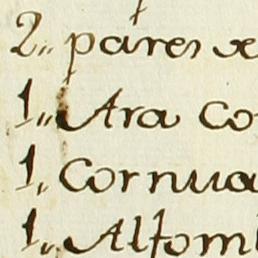 2.. pares de
1.. Ara co
1.. Cornua
1.. Alfom